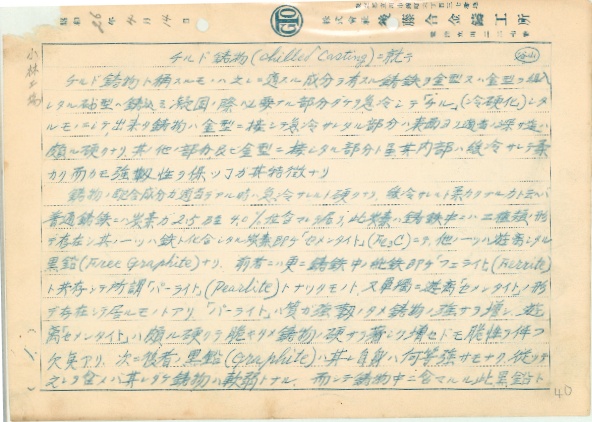 昭和 26年 4月 14日
株式會社 後藤合金鑄工所
GTO
小林工場
チルド鋳物(chilled Casting)ニ就テ
チルド鋳物ト稱スルモノハ之レニ適スル成分ヲ有スル鋳鉄ヲ金型又ハ金型ヲ
シタル砂型ヘ鋳込ミ凝固ノ際 部分ダケヲ急冷シテ「チル」(冷硬化)シタ
ルモノニシテ出来タ鋳物ハ金型ニ接シテ急冷サレタル部分ハ表面ヨリ 深サ迄ハ
頗ル硬クナリ其ノ他ノ部分 金型ニ接シタル部分ト 其内部ハ緩冷サレテ柔
カク而カモ強靱性ヲ保ツノガ其特徴ナリ
鋳物ノ配合成分ガ適当デアル時ハ急冷サレルト硬クナリ、緩冷サレルト柔カクナルカト云ヘバ
普通鋳鉄ニハ炭素ガ2.5乃至4.0%位含マレテ居リ此炭素ハ鋳鉄中ニハ二種類ノ形
デ存在シ其ノ一ツハ鉄ト化合シタル炭素即チ「セメンタイト」(Fe₃C)ニテ、他ノ一ツハ遊離シタル
黒鉛(Free Graphite)ナリ、前者ニハ更ニ鋳鉄中ノ純鉄即チ「フェライト」(Ferrite)
ト共存シテ所謂「パーライト」(Pearlite)トナリタルモノト、又單獨ニ遊離「セメンタイト」ノ形
デ存在シテ居ルモノトアリ「パーライト」ハ質ガ強靱ノタメ鋳物ノ強サヲ増シ、遊
離「セメンタイト」ハ頗ル硬クテ脆キタメ鋳物ノ硬サヲ著シク増セドモ脆性ヲ伴フ
欠点アリ、次ニ後者ノ黒鉛(Graphite)ハ其レ自身ハ何等強サモナク、従ツテ
之レヲ含メバ其レダケ鋳物ハ軟弱トナル、而シテ鋳物中ニ含マルル此黒鉛ト
40